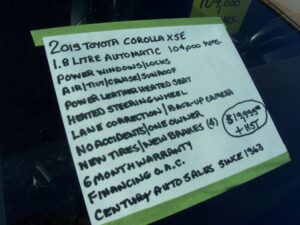 104,000
KMS
2019 TOYOTA COROLLA XSE
1.8 LITRE AUTOMATIC 104,000 KMS.
POWER WINDOWS/LOCKS
AIR/TILT/CRUISE/SUNROOF
POWER LEATHER HEATED SEAT
HEATED STEERING WHEEL
LANE CORRECTION/BACK-UP CAMERA
NO ACCIDENTS/ONE OWNER
NEW TIRES/NEW BRAKES (4)
6 MONTH WARRANTY
FINANCING O.A.C.
CENTURY AUTO SALES SINCE 1963
$19,999.00
+ HST